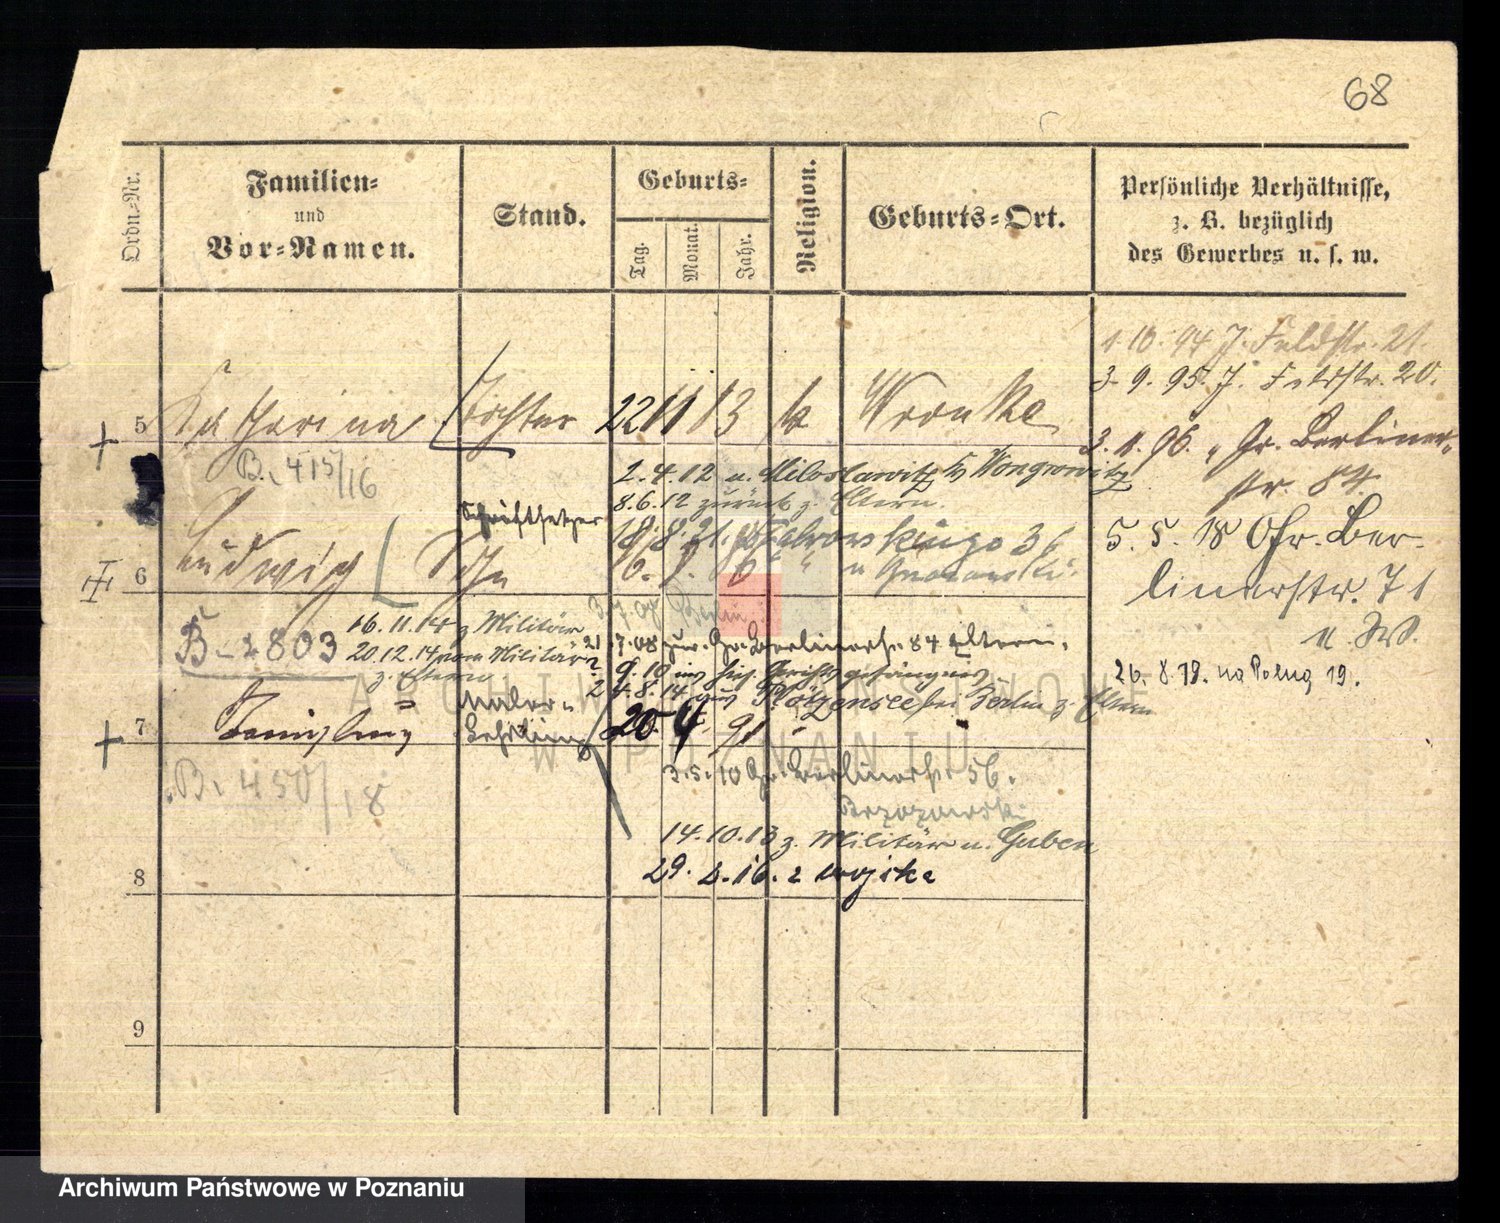 68
Ordn.-Nr.
Familien-
und
Vor-Namen.
Stand.
Geburts-
Tag.
Monat.
Jahr.
Religion.
Geburts-Ort.
Persönliche Verhältnisse,
z. B. bezüglich
des Gewerbes u. s. w.
1. 10. 94 J. Feldstr. 21.
3. 9. 95. J. Feldstr. 20.
3. 1. 96. " Gr. Berliner-
str. 84
5. 5. 18 Gr. Ber-
linerstr. 71
26. 8. 19. na Polną 19.
5 Katharina Tochter 22 11 83 k Wronke
B. 415/16
2. 4. 12 n. Miloslawitz b/ Wongrowitz
8. 6. 12 zurück z. Eltern.
Schriftsetzer
6 Ludwig Sohn
B. 2803
16. 11. 14 z Militär
20. 12. 14 vom Militär
z. Eltern
Berlin
21. 7. 08 zur. Gr. Berlinerstr. 84 Eltern.
9. 10 ins hies. Gerichtsgefängnis
24. 8. 14 aus Plötzensee bei Berlin z. Eltern
Maler-
Lehrling
7 Stanislaus 20. 4. 91
B. 450/18
3. 5. 10 Gr. Berlinerstr. 56.
Brzozowski
14. 10. 13 z. Militär n. Guben
8
29. 16. z wojska
9
ARCHIWUM PAŃSTWOWE
W POZNANIU
Archiwum Państwowe w Poznaniu